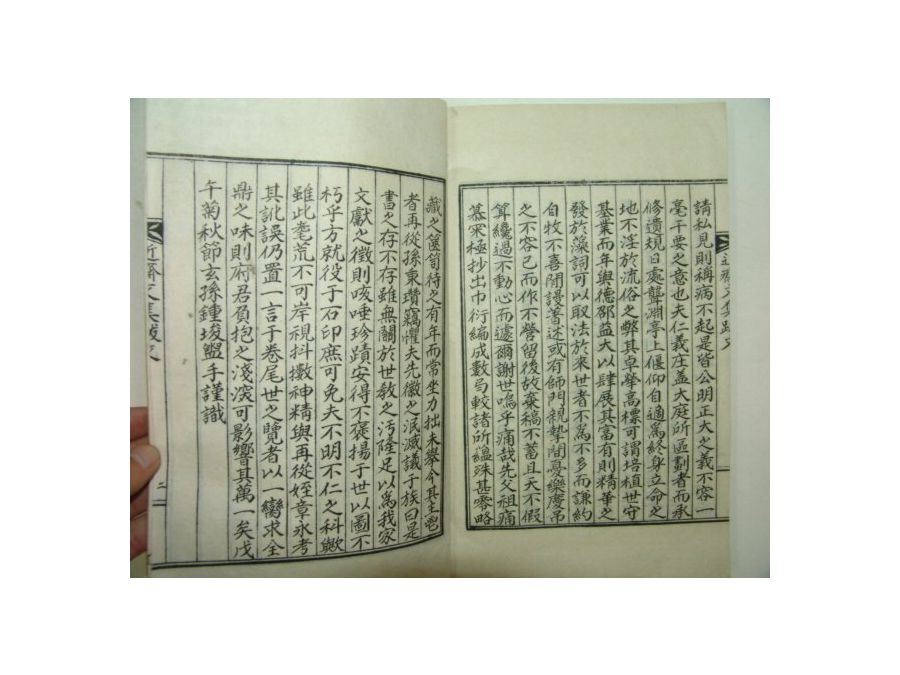 請私見則稱病不起是皆公明正大之義不容一
毫干要之意也夫仁義庄盖大庭所區劃者而承
修遺規日處聾淵亭上偃仰自適爲終身立命之
地不淫於流俗之弊其卓犖高標可謂培植世守
基業而年與德邵益大以肆展其富有則精華之
發於藻詞可以取法於來世者不爲不多而謙約
自牧不喜閒謾著述或有師門親摯間憂樂慶吊
之不容已而作不營留後故棄稿不蓄且天不假
算纔過不動心而遽爾謝世嗚乎痛哉先父祖痛
慕罙極抄出巾衍編成數局較諸所縕殊甚零略
近齋文集跋文
藏之篋笥待之有年而常坐力拙未擧今其主鬯
者再從孫東瓚竊懼夫先徽之泯滅議于族曰是
書之存不存雖無關於世敎之汚隆足以爲我家
文獻之徵則咳唾珍蹟安得不褒揚于世以圖不
朽乎方就役于石印庶可免夫不明不仁之科歟
雖此耄荒不可岸視抖擻神精與再從姪章永考
其訛誤仍置一言于卷尾世之覽者以一臠求全
鼎之味則府君負抱之淺深可影響其萬一矣戊
午菊秋節玄孫鍾埈盥手謹識
近齋文集跋文
二